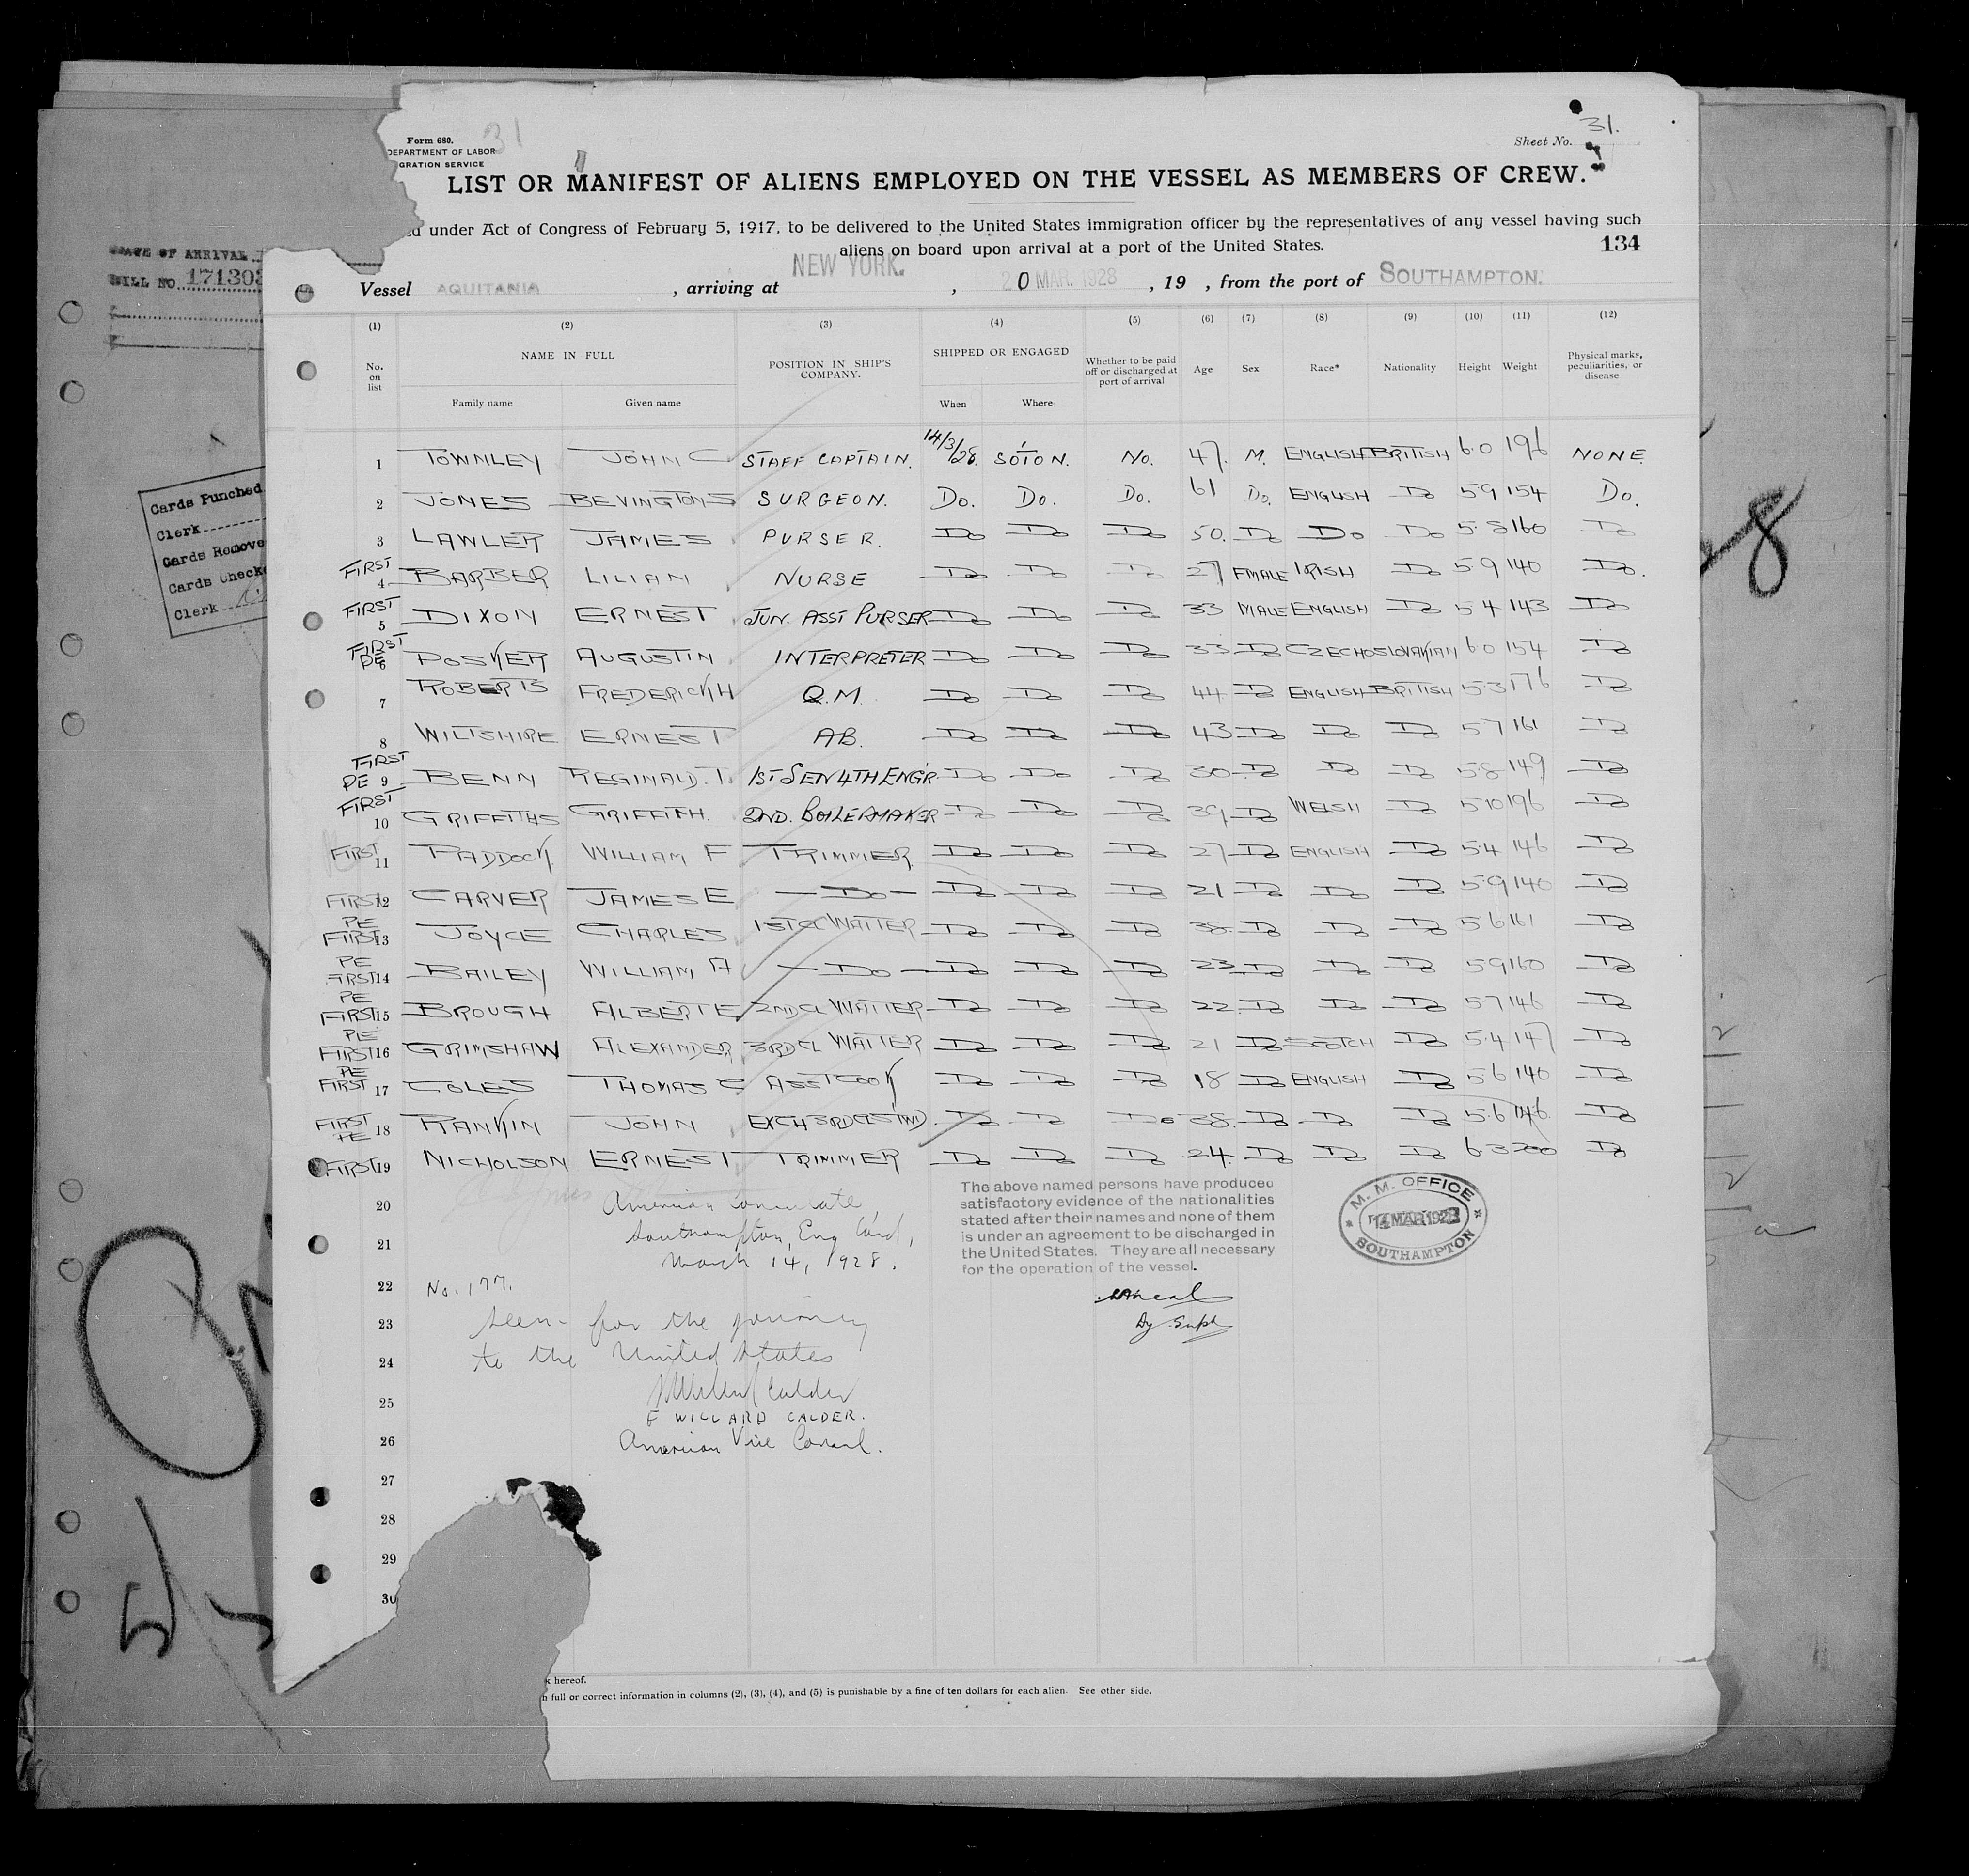 31
Form 680.
DEPARTMENT OF LABOR
GRATION SERVICE
Sheet No. 31.
LIST OR MANIFEST OF ALIENS EMPLOYED ON THE VESSEL AS MEMBERS OF CREW.
ed under Act of Congress of February 5, 1917, to be delivered to the United States immigration officer by the representatives of any vessel having such
aliens on board upon arrival at a port of the United States.
134
Vessel AQUITANIA , arriving at NEW YORK. , 20 MAR. 1928 , 19 , from the port of SOUTHAMPTON.
OF ARRIVAL
BILL NO. 171303
(1) (2) (3) (4) (5) (6) (7) (8) (9) (10) (11) (12)
No. on list NAME IN FULL POSITION IN SHIP'S COMPANY. SHIPPED OR ENGAGED Whether to be paid off or discharged at port of arrival Age Sex Race* Nationality Height Weight Physical marks, peculiarities, or disease
Family name Given name When Where
1 TOWNLEY JOHN C STAFF CAPTAIN. 14/3/28. SO'TON. No. 47. M. ENGLISH BRITISH 6.0 196 NONE
2 JONES BEVINGTON S SURGEON. Do. Do. Do. 61 Do. ENGLISH Do 5 9 154 Do.
3 LAWLER JAMES PURSER. Do Do Do 50. Do Do Do 5.8 160 Do
FIRST 4 BARBER LILIAN NURSE Do Do Do 27 FMALE IRISH Do 5 9 140 Do.
FIRST 5 DIXON ERNEST JUN. ASST PURSER Do Do Do 33 MALE ENGLISH Do 5 4 143 Do
FIRST PE 6 POSKER AUGUSTIN INTERPRETER Do Do Do 33 Do CZECHOSLOVAKIAN 6 0 154 Do
7 ROBERTS FREDERICK H Q.M. Do Do Do 44 Do ENGLISH BRITISH 5.3 176 Do
8 WILTSHIRE ERNEST AB. Do Do Do 43 Do Do Do 5 7 161 Do
FIRST PE 9 BENN REGINALD. T. 1ST SEN 4TH ENGR. Do Do Do 30 Do Do Do 5.8 149 Do
FIRST 10 GRIFFITHS GRIFFITH. 2ND. BOILERMAKER Do Do Do 39 Do WELSH Do 5 10 196 Do
FIRST 11 PADDOCK WILLIAM F TRIMMER Do Do Do 27 Do ENGLISH Do 5.4 146 Do
FIRST 12 CARVER JAMES E — Do — Do Do Do 21 Do Do Do 5.9 140 Do
PE FIRST 13 JOYCE CHARLES 1ST CL WAITER Do Do Do 38. Do Do Do 5 6 161 Do
PE FIRST 14 BAILEY WILLIAM A — Do — Do Do Do 23 Do Do Do 5 9 160 Do
PE FIRST 15 BROUGH ALBERT E 2ND CL WAITER Do Do Do 22 Do Do Do 5.7 146 Do
PE FIRST 16 GRIMSHAW ALEXANDER 3RD CL WAITER Do Do Do 21 Do SCOTCH Do 5.4 147 Do
PE FIRST 17 COLES THOMAS C ASST COOK Do Do Do 18 Do ENGLISH Do 5 6 140 Do
FIRST PE 18 RANKIN JOHN EXCH 3RD CL STWD. Do Do Do 38. Do Do Do 5.6 146 Do
FIRST 19 NICHOLSON ERNEST TRIMMER Do Do Do 24. Do Do Do 6.3 200 Do
20
21
22
23
24
25
26
27
28
29
30
American Consulate,
Southampton, England,
March 14, 1928.
No. 177.
Seen for the journey
to the United States
F WILLARD CALDER.
American Vice Consul.
The above named persons have produced
satisfactory evidence of the nationalities
stated after their names and none of them
is under an agreement to be discharged in
the United States. They are all necessary
for the operation of the vessel.
Dy. Supt
M. M. OFFICE
14 MAR 1928
SOUTHAMPTON
Cards Punched
Clerk
Cards Remove
Cards Checke
Clerk
k hereof.
n full or correct information in columns (2), (3), (4), and (5) is punishable by a fine of ten dollars for each alien. See other side.